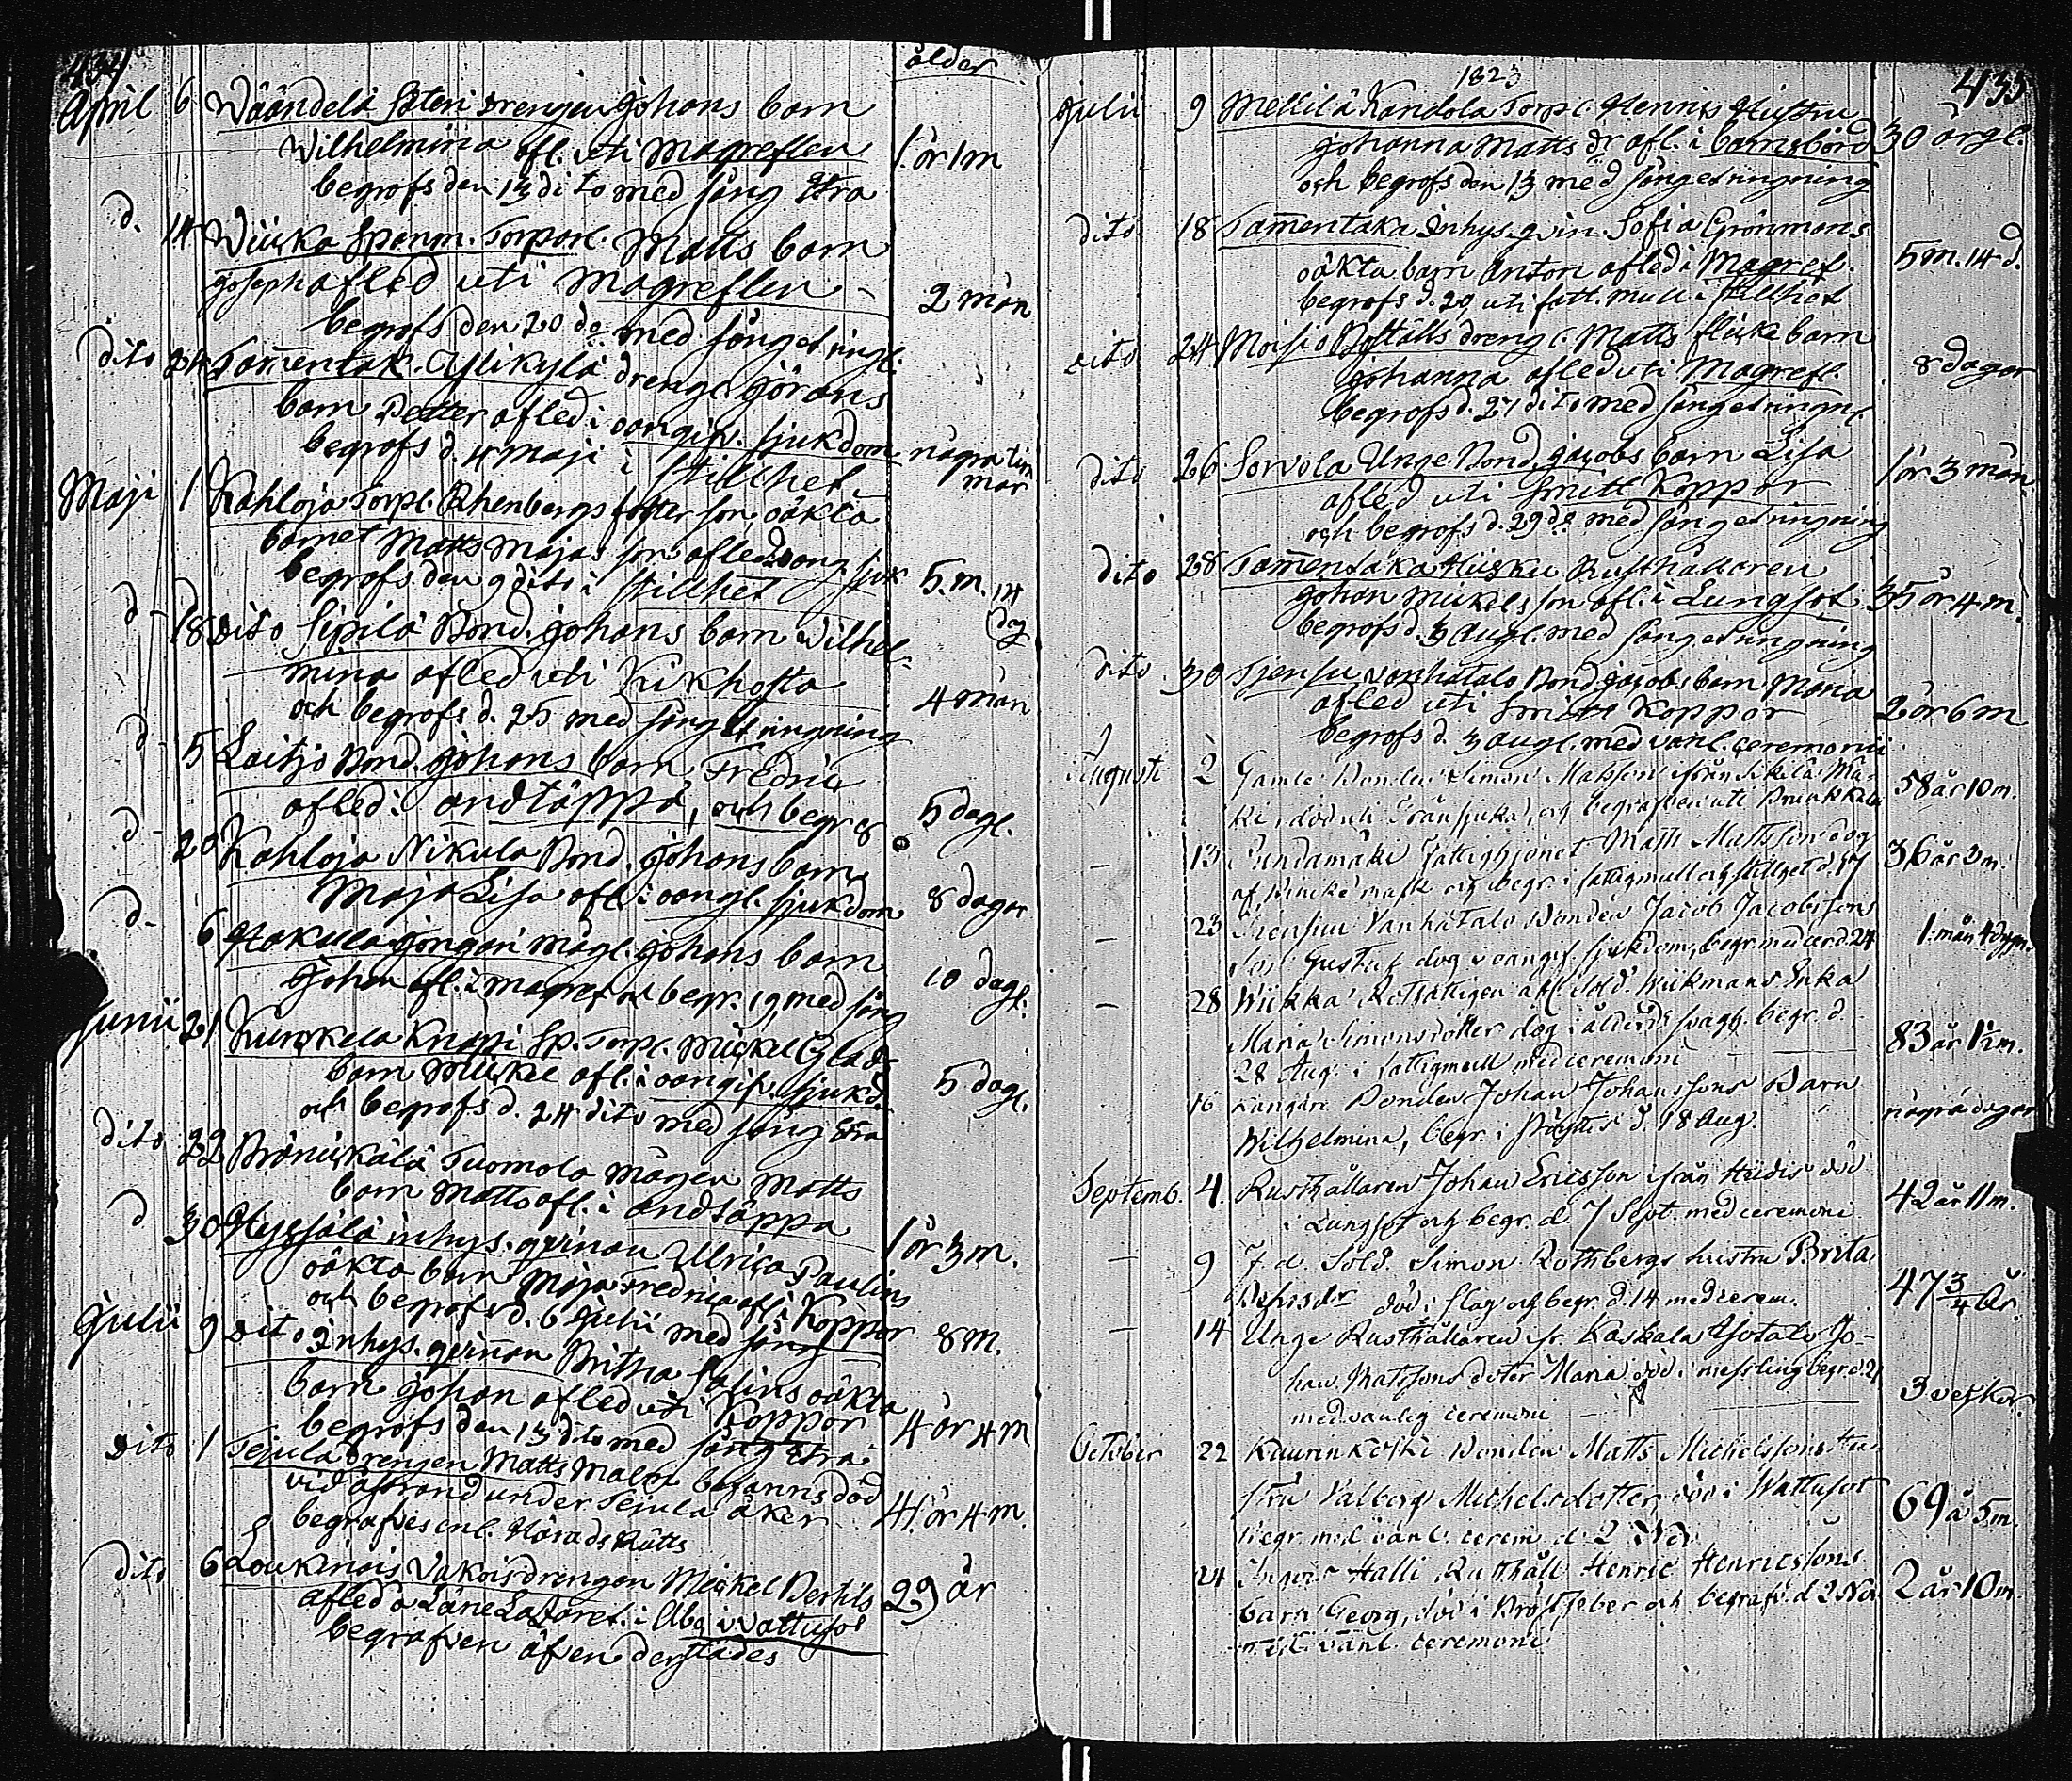 434
ålder
April 6 Wäändelä Säteri drengen Johans barn
Wilhelmina afl. uti Magreflen 1. år 1 m
begrofs den 13 dito med sång &tra
d. 14 Wiuka Spanm. Torparl. Matts barn
Joseph afled uti Magreflen 2 mån
begrofs den 20 do med sång et ringl.
dito 24 Tamentak. Ylikylä drengl. Görans
barn Petter afled i oangifv. sjukdom några tim
begrofs d. 4 Maji i stillhet mar
Maji 1 Kahloja Torpl. Rhenbergs foster son, oäkta
barnet Matts Majas son afled oang. sjuk 5. m. 14
begrofs den 9 dito i stillhet dag
d - 18 dito Sipilä Bond. Johans barn Wilhel-
mina afled uti Kikhosta 4 mån
och begrofs d. 25 med sång et ringning
d - 5 Laitjo Bond. Johans barn Fredric
afled i andtäppa, och begr 8 5 dagl.
d - 20 Kahloja Nikula Bond. Johans barn
Maja Lisa afl. i oangl. sjukdom 8 dagar
d. - 6 Hakula Jongari mågl. Johans barn
Johan afl. i magref. och begr. 19 med sång 10 dagl.
Junii 21 Kunkela Knapi Sp. Torpl. Mickel Glads
barn Mickel afl. i oangifv. sjukd. 5 dagl.
och begrofs d. 24 dito med sång &tra
dito 22 Pränikälä Tuomola mågen Matts
barn Matts afl. i andtäppa 1 år 3 m.
d 30 inhys. qvinnan Ulrica Paulins
oäkta barn Maja Fredrica afl. i Koppor 8 m.
och begrofs d. 6 Julii med sång
Julii 9 dito Inhys. qvinnan Britha Salins oäkta
barn Johan afled uti Koppor 4 år 4 m
begrofs den 13 dito med sång &tra
dito 1 Tejula drengen Matts Malm befanns död
vid åstrand under Tejula åker 41. år 4 m.
begrafves enl. Härads Rätts
dito 6 Loukinais Vakois drengen Mickel Bertils 29 år
afled å Läne Lazaret. i Åbo i Vattusot
begrafven äfven derstädes
1823
435
Julii 9 Mellilä Kandola Torpl. Henriks Hustru
Johanna Matts dr afl. i barnsbörd 30 årgl.
och begrofs den 13 med sång et ringning
dito 18 Tamentaka Inhys. qvin. Sofia Grönmans
oäkta barn Anton afled i Magref. 5 m. 14 d.
begrofs d. 20 uti fatt. mull i stillhet
dito 24 Moisio Bställs drengl. Matts flicke barn
Johanna afled uti Magrefl. 8 dagar
begrofs d. 27 dito med sång et ringnl.
dito 26 Sorvola Unge Bond. Jacobs barn Lisa
afled uti smitt Koppor 1 år 3 mån.
och begrofs d. 29 do med sång et ringning
dito 28 Tamentaka Husku Rusthållaren
Johan Mickels son afl. i Lungsot 35 år 4 m.
begrofs d. 3 Augl. med sång et ringning
dito 30 Tjensu vanhatalo Bond. Jacobs barn Maria
afled uti smitt Koppor 2 år 6 m
begrofs d. 3 Augl. med vanl. ceremonii
Augusti 2 Gamle Bonden Simon Matsson ifrån Sikilä Mä-
ki, död uti Trånsjuka, och begrafven uti Prunkkala 58 år 10 m.
- 13 Sundamäki fattighjonet Matts Mattsson dog
af Binicke mask och begr. i fattigmull och stillhet d. 17 36 år 3 m.
- 23 Tiensuu Vanhatalo Bonden Jacob Jacobssons
son Gustaf dog i oangif. sjukdom, begr. med cer. d. 24 1. mån 4 dygn.
- 28 Wiikka Rotfattigen afl. Sold. Wiikmans Enka
Maria Simonsdotter dog i ålderds svagh. begr. d.
28 Aug. i fattigmull med ceremoni 83 år 1½ m.
16 Kangare Bonden Johan Johanssons Barn
Wilhelmina, begr. i Pöytis d. 18 Aug. några dagar
Septemb. 4. Rusthållaren Johan Ericsson ifrån Heidis död
i Lungsot och begr. d. 7 Sept. med ceremoni 42 år 11 m.
- 9 F. d. Sold. Simon Rothbergs hustru Brita
död i slag och begr. d. 14 med cerem. 47 3/4 år.
- 14 Unge Rusthållaren fr. Kaskala Ylotalo Jo-
han Matssons doter Maria död i messling begr. d. 21 3 veckor.
med vanlig ceremoni
October 22 Kaurinkoski Bonden Matts Michelssons Hu-
stru Valborg Michelsdotter, död i Wattusot 69 å 5 m.
begr. med vanl. cerem. d. 2 Nov.
24 Halli Rusthåll. Henric Henricssons
barn Georg, död i Bröstfeber och begrafv. d. 2 Nov 2 år 10 m.
med vanl. ceremoni